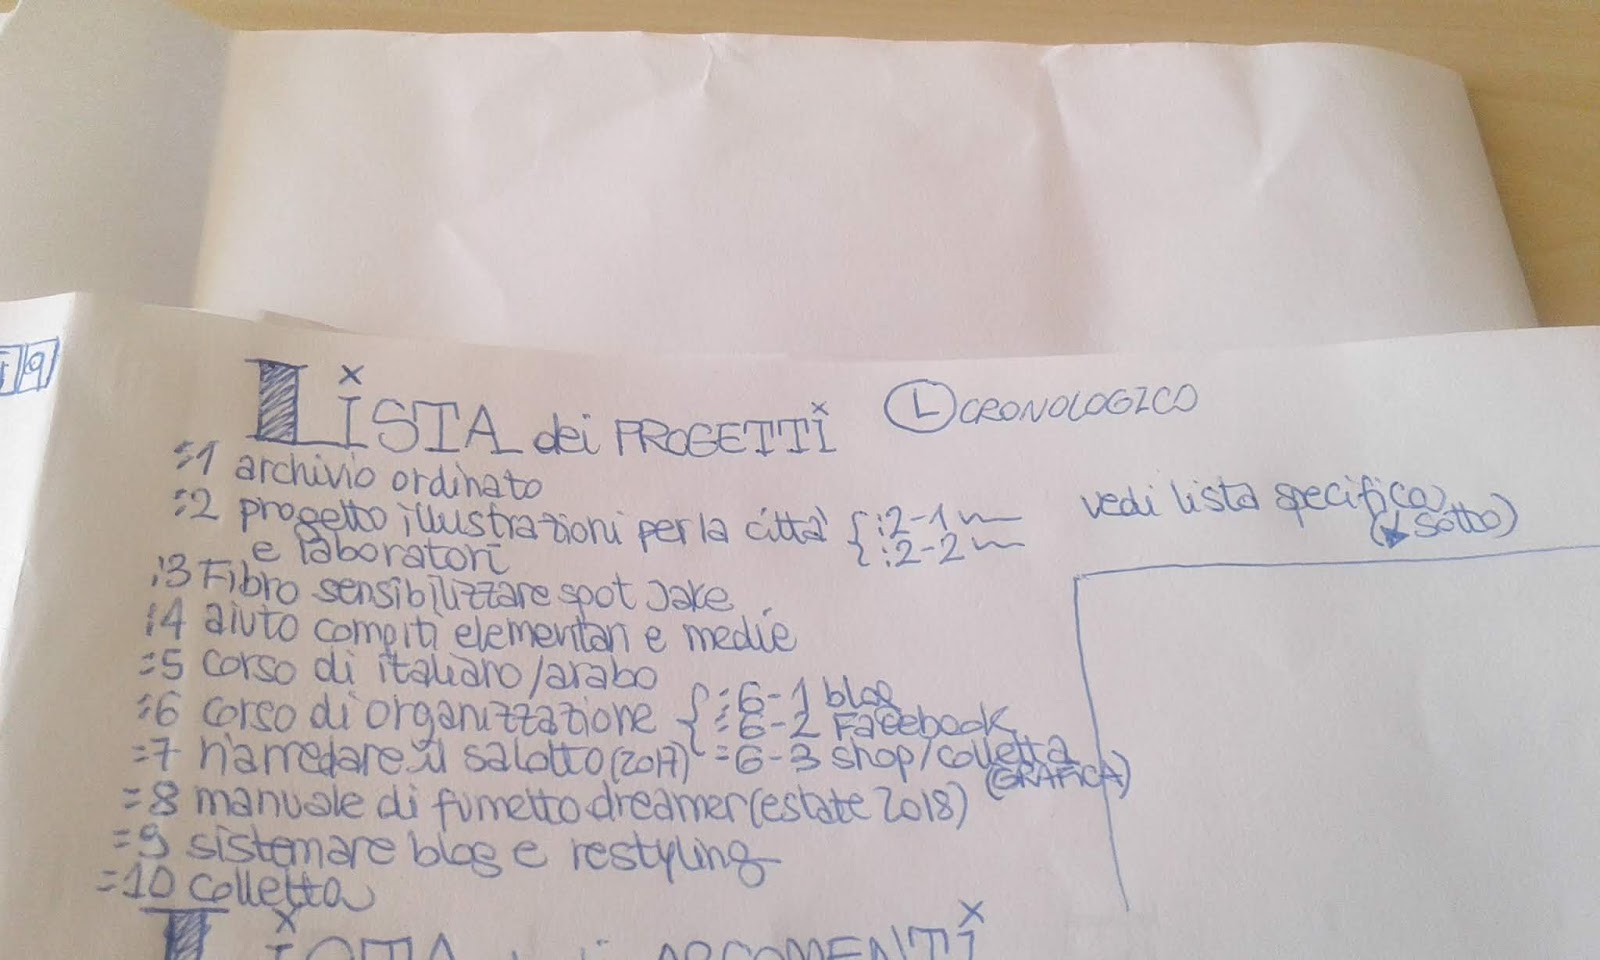 19
LISTA dei PROGETTI
(L) CRONOLOGICO
:1 archivio ordinato
:2 progetto illustrazioni per la città { :2-1
:2-2
e laboratori
vedi lista specifica
(↓ sotto)
:3 Fibro sensibilizzare spot Jake
:4 aiuto compiti elementari e medie
:5 corso di italiano/arabo
:6 corso di organizzazione { :6-1 blog
:6-2 Facebook
:7 riarredare il salotto (2017) :6-3 shop/colletta
(GRAFICA)
:8 manuale di fumetto dreamer (estate 2018)
:9 sistemare blog e restyling
:10 colletta
LISTA ARGOMENTI